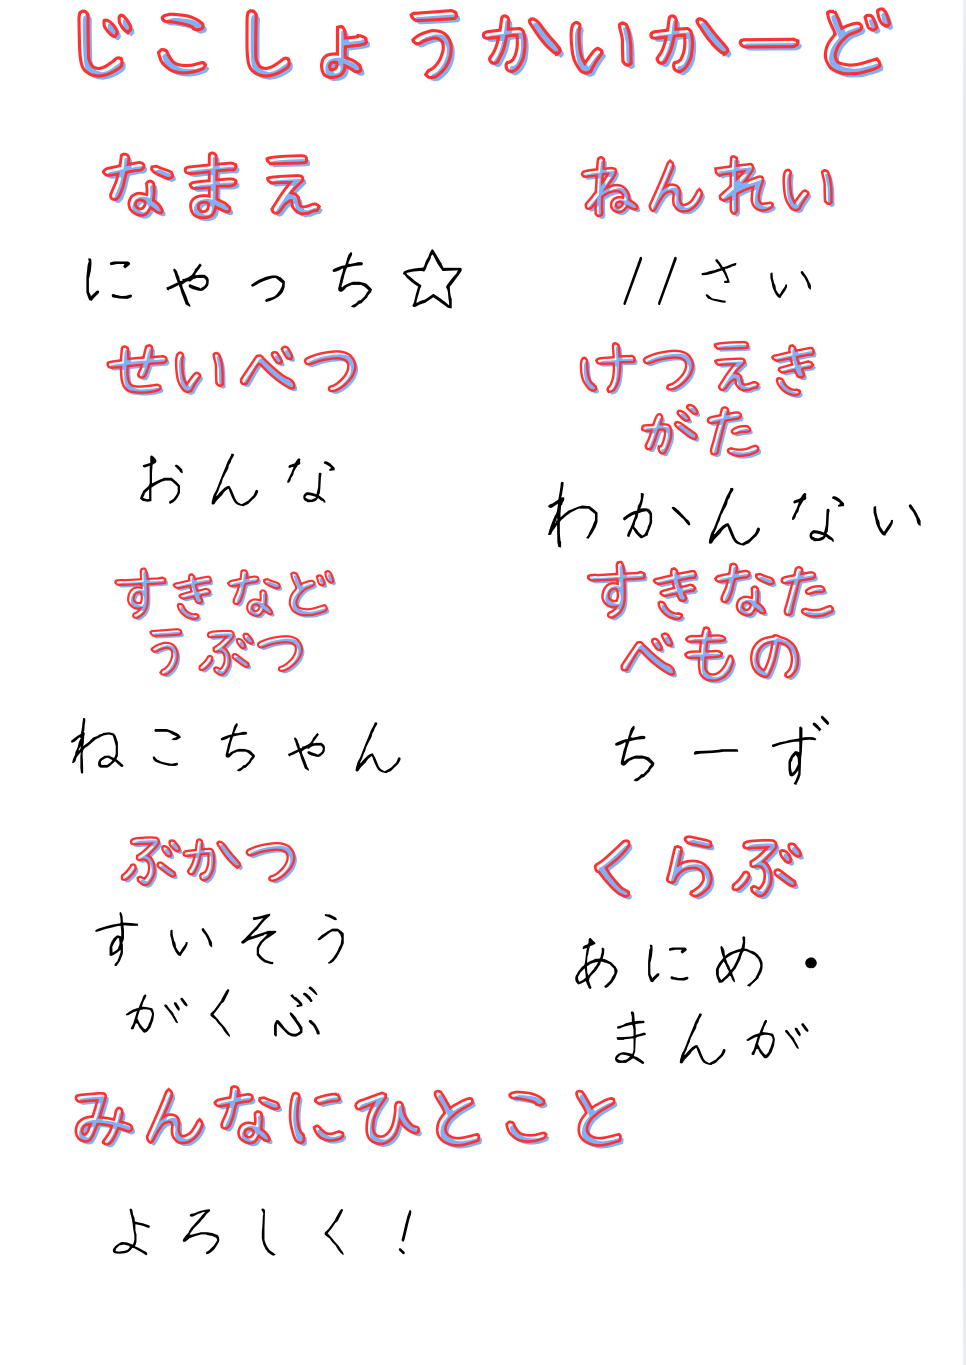 じこしょうかいかーど
なまえ
にゃっち☆
ねんれい
11さい
せいべつ
おんな
けつえき
がた
わかんない
すきなど
うぶつ
ねこちゃん
すきなた
べもの
ちーず
ぶかつ
すいそう
がくぶ
くらぶ
あにめ・
まんが
みんなにひとこと
よろしく!